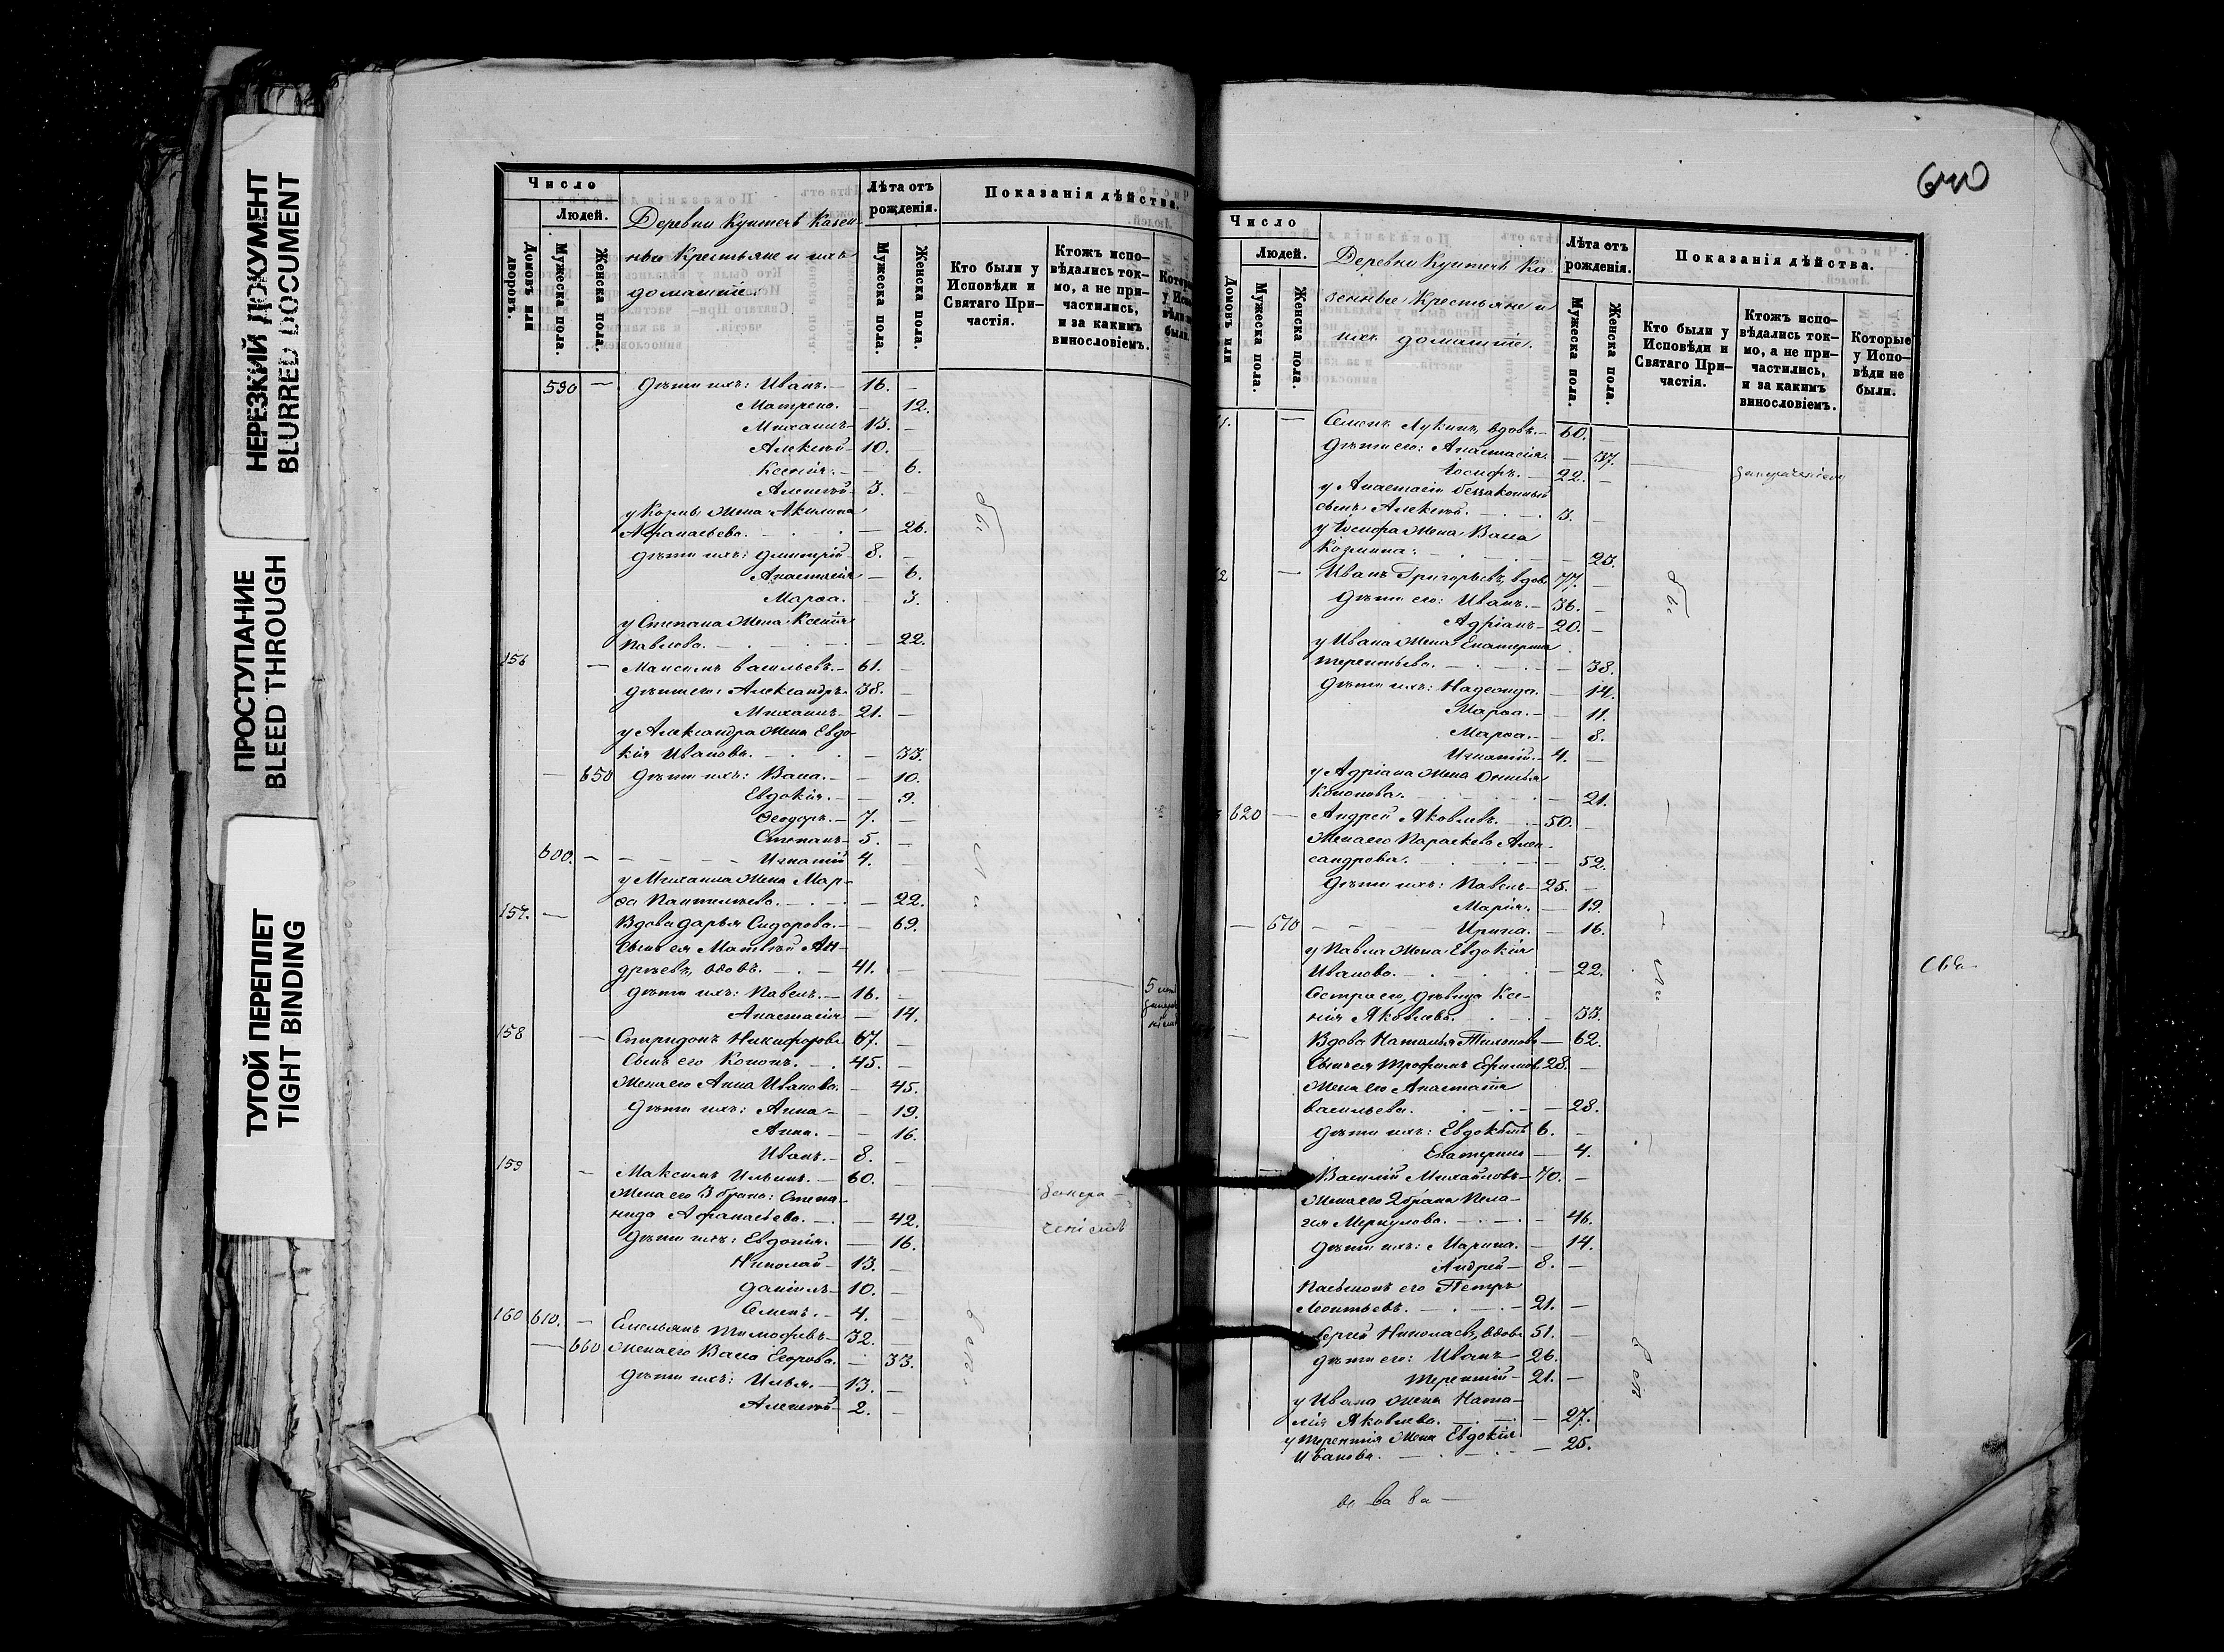 НЕРЕЗКИЙ ДОКУМЕНТ
BLURRED DOCUMENT
ПРОСТУПАНИЕ
BLEED THROUGH
ТУГОЙ ПЕРЕПЛЕТ
TIGHT BINDING
Число
Людей.
Домовъ или дворовъ.
Мужеска пола.
Женска пола.
Деревни казен-
ные Крестьяне и ихъ
домашніе.
Лѣта отъ рожденія.
Мужеска пола.
Женска пола.
Показанія дѣйства.
Кто были у Исповѣди и Святаго При-частія.
Ктожъ испо-вѣдались ток-мо, а не при-частились, и за какимъ винословіемъ.
590 — дѣти ихъ: Иванъ. — 16. —
Матрена. — 12.
Михаилъ — 13. —
Алексѣй — 10. —
Ксенія. — — 6.
Алексѣй — 3. —
жена Акилина
Афанасьева. — 26.
дѣти ихъ: Димитрій 8. —
Анастасія — 6.
Марѳа. 3.
у Степана жена Ксенія
Павлова. — 22.
156 — Максимъ Васильевъ. — 61. —
дѣти его: Александръ 38. —
Михаилъ — 21. —
у Александра жена Евдо-
кія Иванова. — 33.
— 650 дѣти ихъ: Васса. — — 10.
Евдокія. — — 9.
Ѳеодоръ. — 7. —
Степанъ — 5. —
600. — Игнатій 4. —
у Михаила жена Мар-
ѳа Пантелѣева. — 22.
157. — Вдова Дарья Сидорова. — — 69.
Сынъ ея Матвѣй Ан-
дреевъ, вдовъ. — 41. —
дѣти ихъ: Павелъ. — 16. —
Анастасія — 14.
158 — Спиридонъ Никифоровъ 67. —
Сынъ его Кононъ. — 45. —
Жена его Анна Иванова. — 45.
дѣти ихъ: Анна — — 19.
Анна. — — 16.
Иванъ. — 8. —
159 — Максимъ Ильинъ. — 60. —
Жена его 3 брака: Степа-
нида Афанасьева. — — 42.
дѣти ихъ: Евдокія. — 16.
Николай — 13. —
Даніилъ — 10. —
Семенъ. — 4. —
160 610. — Емельянъ Тимофѣевъ — 32. —
— 660 Жена его Васса Егорова. — 33.
дѣти ихъ: Илья. — 13. —
Алексѣй — 2. —
640
Число
Людей.
Домовъ или
Мужеска пола.
Женска пола.
Деревни Ка-
зенные Крестьяне и
ихъ домашніе.
Лѣта отъ рожденія.
Мужеска пола.
Женска пола.
Показанія дѣйства.
Кто были у Исповѣди и Святаго При-частія.
Ктожъ испо-вѣдались ток-мо, а не при-частились, и за какимъ винословіемъ.
Которые у Испо-вѣди не были.
— Семенъ Лукинъ, вдовъ. — 60. —
дѣти его: Анастасія. — 37.
Іосифъ. — 22. —
у Анастасіи беззаконный
сынъ Алексѣй. 3. —
у Іосифа жена Васса
Козмина. — 23.
— Иванъ Григорьевъ, вдовъ 77. —
дѣти его: Иванъ. — 36. —
Адріанъ — 20. —
у Ивана жена Екатерина
Терентьева. — 38.
дѣти ихъ: Надежда. — 14.
Марѳа. — — 11.
Марѳа. — — 8.
Игнатій — 4. —
у Адріана жена
Кононова. — 21.
620 — Андрей Яковлевъ. — 50. —
Жена его Параскева Алек-
сандрова. — 52.
дѣти ихъ: Павелъ — 25. —
Марія. — 19.
— 670 — Ирина. — 16.
у Павла жена Евдокія
Иванова. — 22.
Сестра его, дѣвица Ксе-
нія Яковлева. — 33.
— Вдова Наталья — 62.
Сынъ ея Трофимъ Ефимовъ 28. —
Жена его Анастасія
Васильева. — 28.
дѣти ихъ: Евдокимъ 6. —
Екатерина — 4.
Василій Михайловъ — 70. —
Жена его 2 брака Пела-
гія Меркулова. — 46.
дѣти ихъ: Марина. — 14.
Андрей — 8. —
Пасынокъ его Петръ
Леонтьевъ. — 21. —
Сергій Николаевъ, вдовъ 51. —
дѣти его: Иванъ — 26. —
Терентій — 21. —
у Ивана жена Ната-
лія Яковлева. — 27.
у Терентія жена Евдокія
Иванова. — 25.